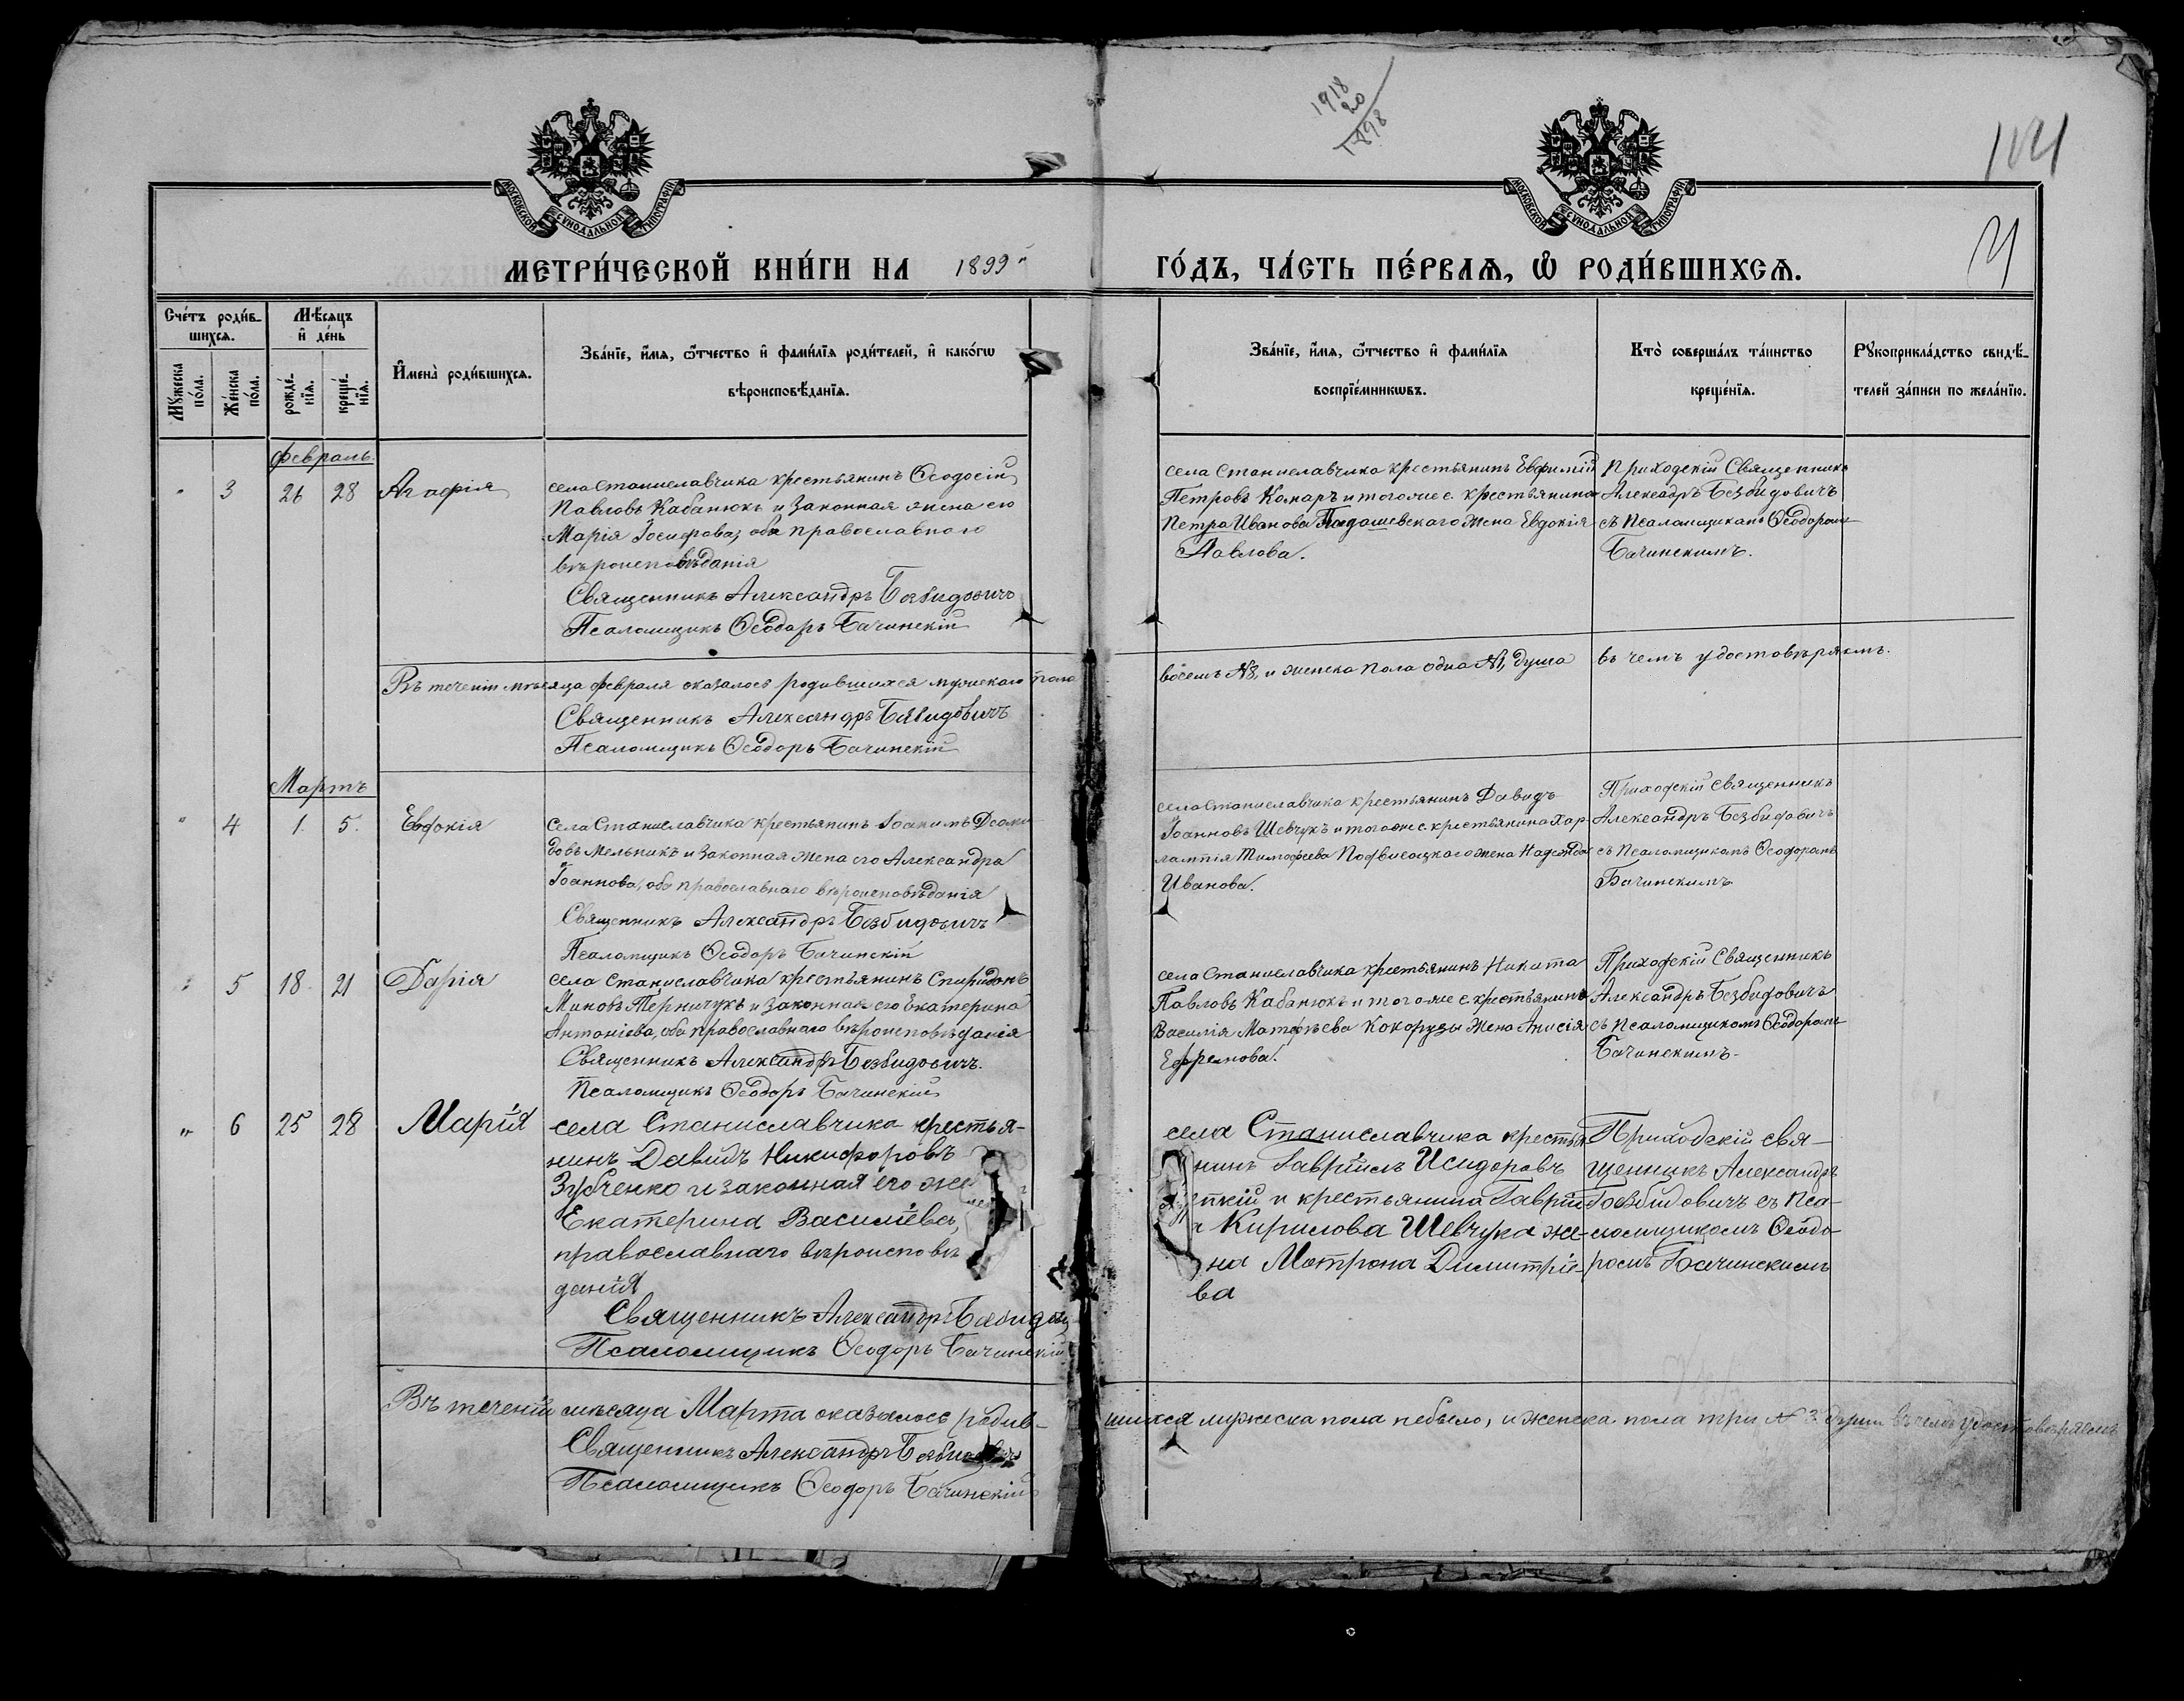 1918
20
1898
104
МОСКОВСКОЙ СѴНОДАЛЬНОЙ ТИПОГРАФІИ
МОСКОВСКОЙ СѴНОДАЛЬНОЙ ТИПОГРАФІИ
МЕТРИ́ЧЕСКОЙ КНИ́ГИ НА 1899
ГО́ДЪ, ЧА́СТЬ ПЕ́РВАѦ, Ѽ РОДИ́ВШИХСѦ.
Сче́тъ роди́в-
шихсѧ.
Мѣ́сѧцъ
и҆ де́нь
Мꙋ́жеска
по́ла.
Же́нска
по́ла.
рожде́-
нїѧ.
креще́-
нїѧ.
И҆мена̀ роди́вшихсѧ.
Зва́нїе, и҆́мѧ, ѻ҆́тчество и҆ фами́лїѧ роди́телей, и҆ како́гѡ
вѣроисповѣ́данїѧ.
Зва́нїе, и҆́мѧ, ѻ҆́тчество и҆ фами́лїѧ
воспрїе́мникѡвъ.
Кто̀ соверша́лъ та́инство
креще́нїѧ.
Рꙋкоприкла́дство свидѣ́-
телей за́писи по жела́нїю.
Февраль.
3 26 28 Агафія
села Станиславчика крестьянинъ Ѳеодосій
Павловъ Кабанюкъ и законная жена его
Марія Іосифова, оба православнаго
вѣроисповѣданія
Священникъ Александръ Безвидовичъ
Псаломщикъ Ѳеодоръ Бачинскій
села Станиславчика крестьянинъ Евфимій
Петровъ Комаръ и тогоже с. крестьянина
Петра Иванова Подошевскаго жена Евдокія
Павлова.
Приходскій Священникъ
Александръ Безвидовичъ
съ Псаломщикомъ Ѳеодоромъ
Бачинскимъ.
Въ теченіи мѣсяца Февраля оказалось родившихся мужскаго пола
восемь №8, и женска пола одна №1, душа въ чемъ удостовѣряемъ.
Священникъ Александръ Безвидовичъ
Псаломщикъ Ѳеодоръ Бачинскій
Мартъ
4 1. 5. Евдокія
Села Станиславчика крестьянинъ Іоакимъ Діоми-
довъ Мельникъ и законная жена его Александра
Іоаннова, оба православнаго вѣроисповѣданія
Священникъ Александръ Безвидовичъ
Псаломщикъ Ѳеодоръ Бачинскій
села Станиславчика крестьянинъ Давидъ
Іоанновъ Шевчукъ и тогоже с. крестьянина Хар-
лампія Тимофеева Подвисоцкаго жена Надежда
Иванова.
Приходскій священникъ
Александръ Безвидовичъ
съ Псаломщикомъ Ѳеодоромъ
Бачинскимъ
5 18 21 Дарія
села Станиславчика крестьянинъ Спиридонъ
Миновъ и законная его Екатерина
Антоніева, оба православнаго вѣроисповѣданія
Священникъ Александръ Безвидовичъ.
Псаломщикъ Ѳеодоръ Бачинскій
села Станиславчика крестьянинъ Никита
Павловъ Кабанюкъ и тогоже с крестьянина
Василія Матфѣева Кокорузы жена Анисія
Ефремова.
Приходскій Священникъ
Александръ Безвидовичъ
съ Псаломщикомъ Ѳеодоромъ
Бачинскимъ.
6 25 28 Марія
села Станиславчика крестья-
нинъ Давидъ Никифоровъ
Зубченко и законная его же
Екатерина Василіева,
православнаго вѣроисповѣ
данія
Священникъ Александръ Безвидовичъ
Псаломщикъ Ѳеодоръ Бачинскій
села Станиславчика крестья
нинъ Гавріилъ Исидоровъ
и крестьянина Гаврiи
Кирилова Шевчука же-
на Мотрона Димитріе-
ва
Приходскій свя-
щенникъ Александръ
Безвидовичъ съ Пса-
ломщикомъ Ѳеодо-
ромъ Бачинскимъ
Въ теченіи мѣсяца Марта оказалось родив-
шихся мужеска пола небыло, и женска пола три №3 души въ чемъ удостовѣряемъ
Священникъ Александръ Безвидовичъ
Псаломщикъ Ѳеодоръ Бачинскій